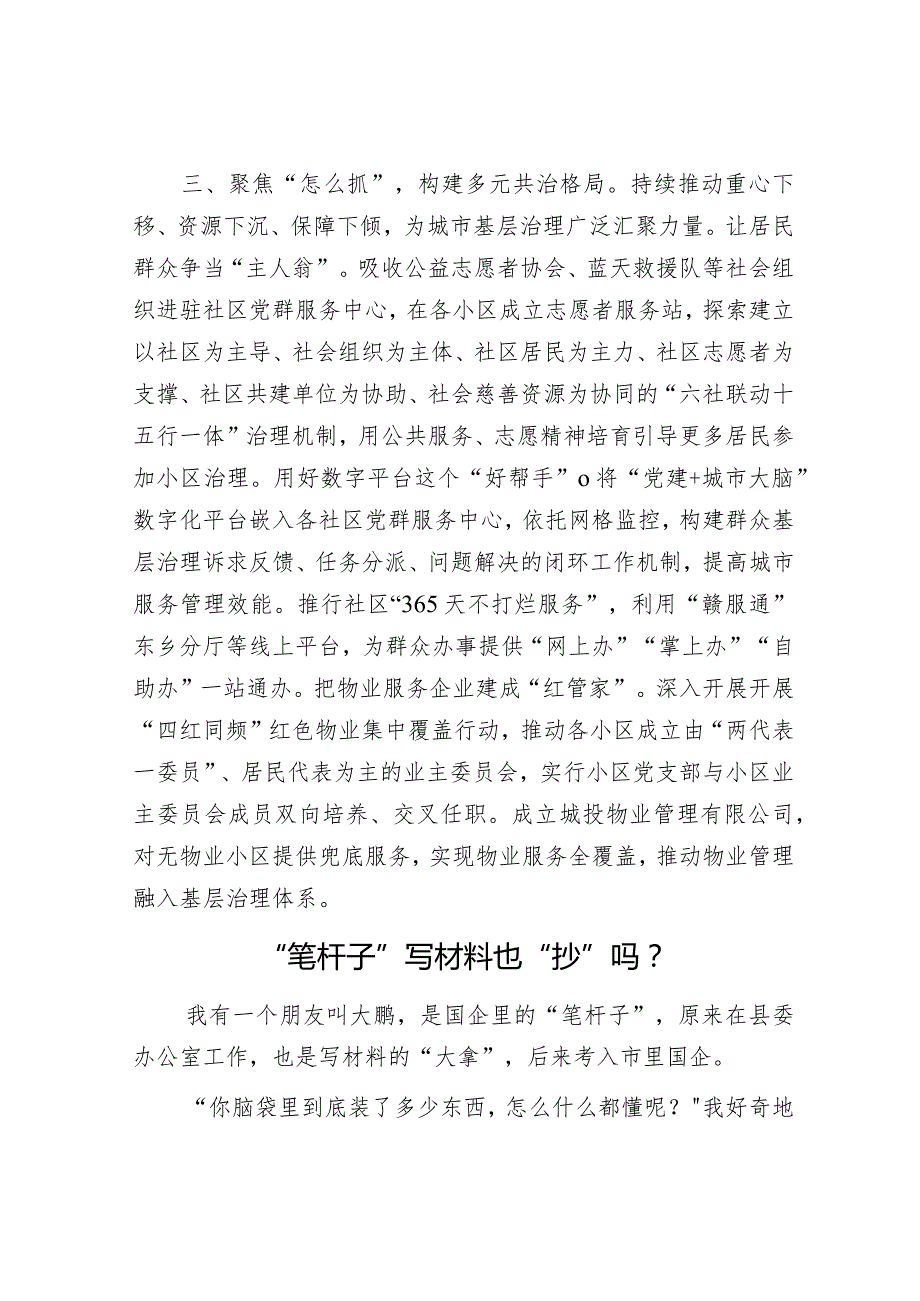 三、聚焦“怎么抓”，构建多元共治格局。持续推动重心下
移、资源下沉、保障下倾，为城市基层治理广泛汇聚力量。让居民
群众争当“主人翁”。吸收公益志愿者协会、蓝天救援队等社会组
织进驻社区党群服务中心，在各小区成立志愿者服务站，探索建立
以社区为主导、社会组织为主体、社区居民为主力、社区志愿者为
支撑、社区共建单位为协助、社会慈善资源为协同的“六社联动十
五行一体”治理机制，用公共服务、志愿精神培育引导更多居民参
加小区治理。用好数字平台这个“好帮手”o将“党建+城市大脑”
数字化平台嵌入各社区党群服务中心，依托网格监控，构建群众基
层治理诉求反馈、任务分派、问题解决的闭环工作机制，提高城市
服务管理效能。推行社区“365天不打烂服务”，利用“赣服通”
东乡分厅等线上平台，为群众办事提供“网上办”“掌上办”“自
助办”一站通办。把物业服务企业建成“红管家”。深入开展开展
“四红同频”红色物业集中覆盖行动，推动各小区成立由“两代表
一委员”、居民代表为主的业主委员会，实行小区党支部与小区业
主委员会成员双向培养、交叉任职。成立城投物业管理有限公司，
对无物业小区提供兜底服务，实现物业服务全覆盖，推动物业管理
融入基层治理体系。
“笔杆子”写材料也“抄”吗？
我有一个朋友叫大鹏，是国企里的“笔杆子”，原来在县委
办公室工作，也是写材料的“大拿”，后来考入市里国企。
“你脑袋里到底装了多少东西，怎么什么都懂呢？"我好奇地